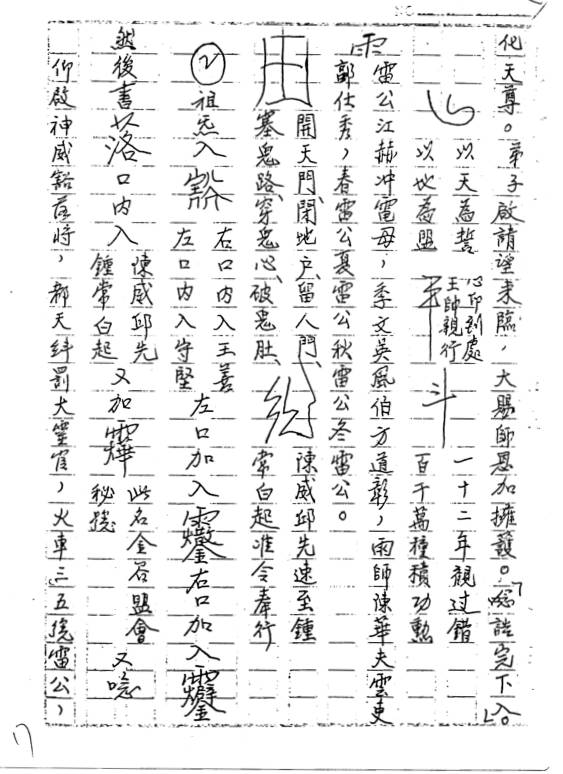 化天尊。弟子啟請望来臨，大賜師恩加擁護。唸誥完下入。
以天為誓 心印到處 一十二年観过错
以地為盟 王帥親行 百千萬種積功勲
雷公江赫冲電母，季文吴風伯方道彰，雨師陳華夫雲吏
郭仕秀，春雷公夏雷公秋雷公冬雷公。
開天門、閉地户、留人門、 陳威邱先速至鍾
塞鬼路、穿鬼心、破鬼肚、 常白起准令奉行
② 祖炁入 右口内入王善 左口加入 右口加入
左口内入守堅
然後書 口内入 陳威邱先 又加 此名金召盟會 又唸
鍾常白起 秘
仰啟神威豁落将，都天纠罰大靈官，火車三五 雷公，
17